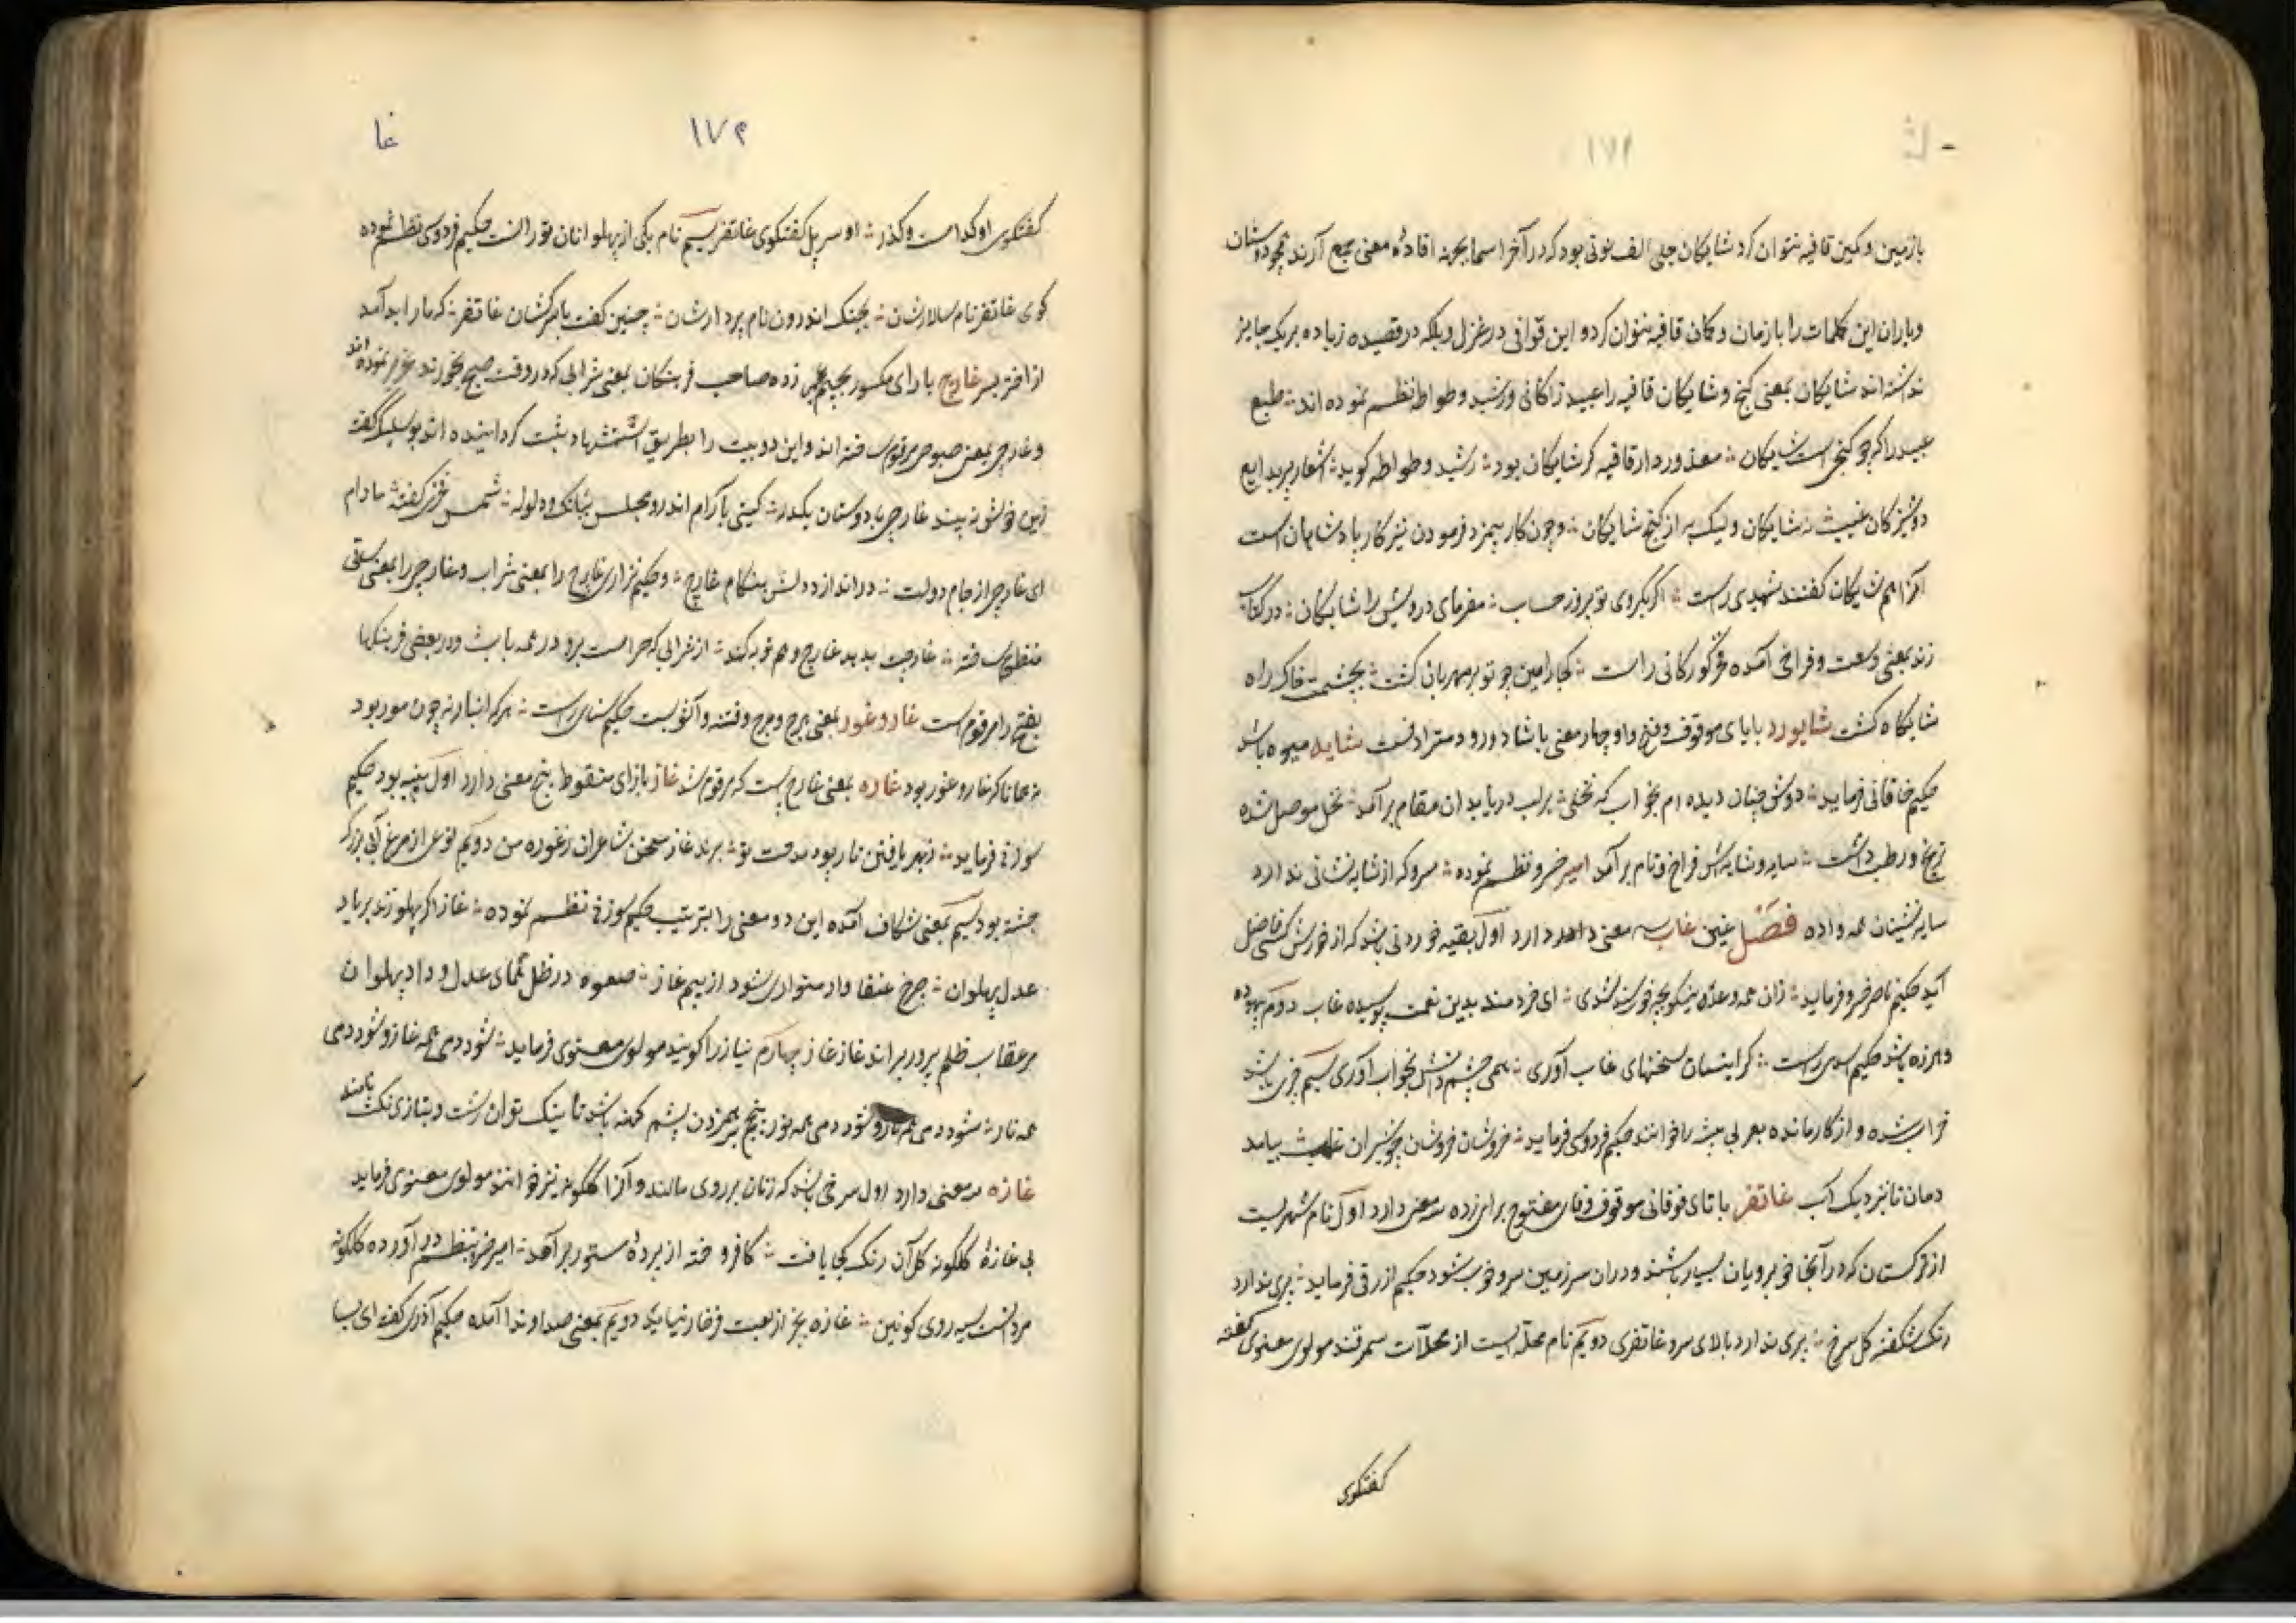 شا
۱۷۱
با زمین و کمین قافیه نتوان کرد شایکان جلی الف نونی بود که در آخر اسما بجهة افادهٔ معنی جمع آرند همچو دوستان
و یاران این کلمات را با زمان و مکان قافیه نتوان کرد و این قوافی در غزل و بلکه در قصیده زیاده بر یک جایز
نداشته اند شایکان بمعنی کنج و شایکان قافیه را عبید زاکانی و رشید وطواط نظم نموده اند طبع
عبید را کرچو کنجی است شایکان معذور دار قافیه کر شایکان بود رشید وطواط کوید اشعار پر بدایع
دوشیزکان نه شایکان ولیک پر از کنج شایکان و چون کار بیمزد فرمودن نیز کار پادشاهان است
آنرا هم شایکان کفتند شهیدی راست اکر بکروی تو بروز حساب مفرمای درویش را شایکان در کتاب
زند بمعنی وسعت و فراخی آمده فخر کورکانی راست کجا رامین چو تو بر مهربان کشت بچشمت خاک راه
شایکاه کشت شایورد بایای موقوف و فتح واو چهار معنی با شادورد مترادفست شایه میوه باشد
حکیم خاقانی فرماید دوش چنان دیده ام بخواب که نخلی بر لب دریا بدان مقام بر آمد نخل موصل شده
ترنج و رطب داشت سایه و شایه اش فراخ و تام بر آمد امیر خسرو نظم نموده سرو که از شایه نشانی ندارد
سایه نشینان همه واده فصل غین غاب سه معنی دارد اول بقیه خوردنی باشد که از خورش کسی فاضل
آید حکیم ناصر خسرو فرماید زان همه وعدهٔ نیکو بچه خورسند شدی ای خردمند بدین نعمت پوسیده غاب دوم بیهوده
و هرزه باشد حکیم اسدی راست کر اینسان سخنهای غاب آوری همی چشم دانش بخواب آوری سیم چیزی باشد
خراب شده و از کار مانده حکیم فردوسی فرماید خروشان خروشان چو شیران بیامد
دمان تا بنزدیک آب غاتفر با تای فوقانی موقوف و فای مفتوح برای زده سه معنی دارد اول نام شهریست
از ترکستان که در آنجا خوبرویان بسیار باشند و در آن سرزمین سرو خوب شود حکیم ازرقی فرماید پری ندارد
رنک شکفته کل سرخ پری ندارد بالای سرو غاتفری دویم نام محله ایست از محلات سمرقند مولوی معنوی کفته
کفتکوی
غا
۱۷۲
کفتکوی او کدامست و کذر او سر پل کفتکوی غاتفر سیم نام یکی از پهلوانان تورانست حکیم فردوسی نظم نموده
کوی غاتفر نام سالارشان بجنک اندرون نام بردارشان چنین کفت با سرکشان غاتفر که ما را بد آمد
از اختر بسر غارج با رای مکسور بجیم زده صاحب فرهنکان بمعنی شرابی که در وقت صبح بخورند مرقوم نموده اند
و غارجی بمعنی صبوحی مرقوم ساخته اند و این دو بیت را بطریق استشهاد ثبت کردانیده اند بوسلیک کفته
غارجی با دوستان یکدله کیتی بآرام اندر و مجلس ببانک و ولوله شمس فخری کفته مادام
ای غارجی از جام دولت در انداز بهنکام غارج و حکیم نزاری غارج را بمعنی شراب و غارجی را بمعنی ساقی
منظوم ساخته غارجت بدهد غارج و هم توبه کند از شرابی که حرامست برو در همه باب و در بعضی فرهنکها
بفتح را مرقوم است غاروغور بمعنی هرج و مرج و فتنه و آشوبست حکیم سنائی راست هر که انبارنه چون مور بود
همانا که غاروغور بود غاره بمعنی غارج است که مرقوم شد غاز بازای منقوط پنج معنی دارد اول پنبه بود حکیم
سوزنی فرماید ز بهر بافتن تار و پود مدحت تو برند غاز سخن شاعران ز غوزه من دویم نوعی از مرغ آبی بزرک
جثه بود سیم بمعنی شکاف آمده این دو معنی را بترتیب حکیم سوزنی نظم نموده غاز اکر پهلو زند بر یاد
عدل پهلوان چرخ عنقا وار متواری شود از بیم غاز صعوه در ظل همای عدل و داد پهلوان
بر عقاب ظلم پرور بر اند غاز غاز چهارم نیاز را کویند مولوی معنوی فرماید شود دمی همه غاز و شود دمی
همه ناز شود دمی همه نار و شود دمی همه نور پنجم برهم زدن پشم کهنه باشد تا نیک توان رشت و بتازی نکث نامند
غازه دو معنی دارد اول سرخی باشد که زنان بر روی مالند و آنرا کلکونه نیز خوانند مولوی معنوی فرماید
بی غازهٔ کلکونه کل آن رنک کجا یافت کافروخته از پردهٔ مستور بر آمد امیر خسرو بنظم در آورده کلکونه
مرد انست سیه روی کونین غازه بجز از لعبت فرخار نیابد دویم بمعنی صدا و ندا آمده حکیم آذری کفته ای بسا